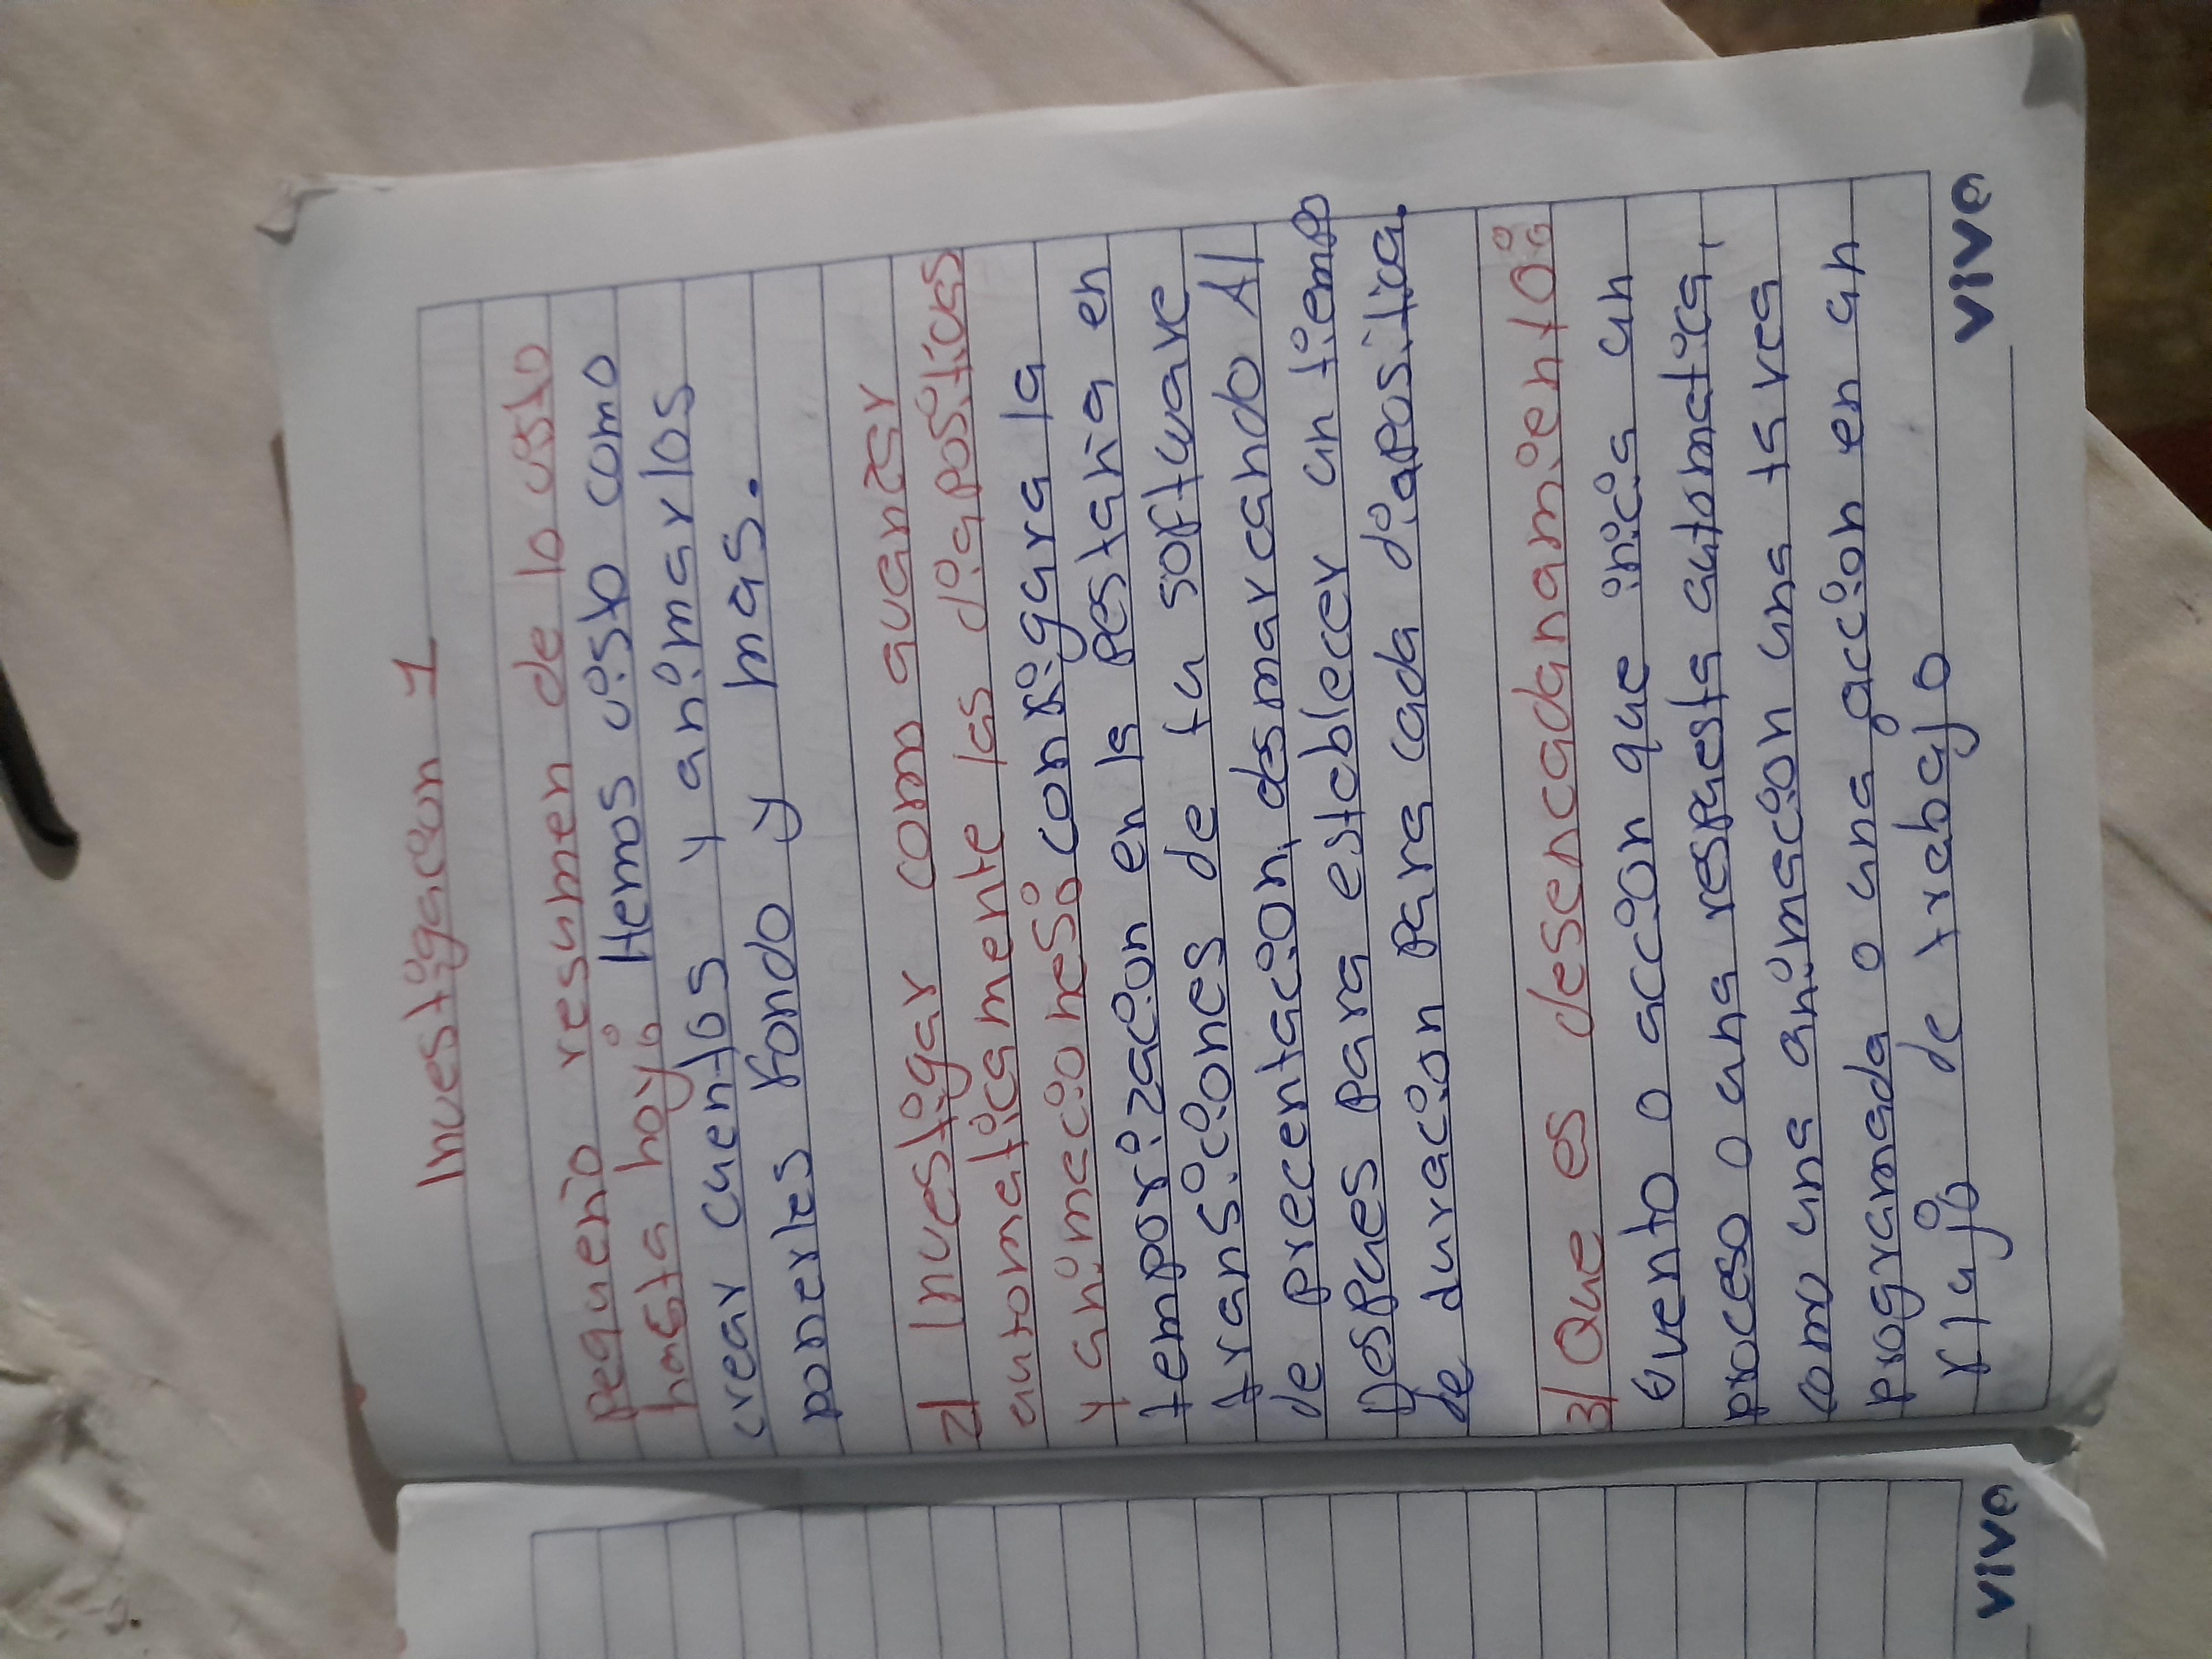 Investigacion 1
pequeño resumen de lo visto
hasta hoy: Hemos visto como
crear cuentos y animarlos
ponerles fondo y mas.
2/ Investigar como avanzar
automaticamente las diapositivas
y animaciones: configura la
temporización en la pestaña en
transiciones de tu software
de precentación, desmarcando Al
Despues para establecer un tiempo
de duración para cada diapositiva.
3/ Que es desencadanamiento:
evento o acción que inicia un
proceso o una respuesta automatica,
como una animación una ts rea
programada o una acción en un
flujo de trabajo
VIVA
VIVA